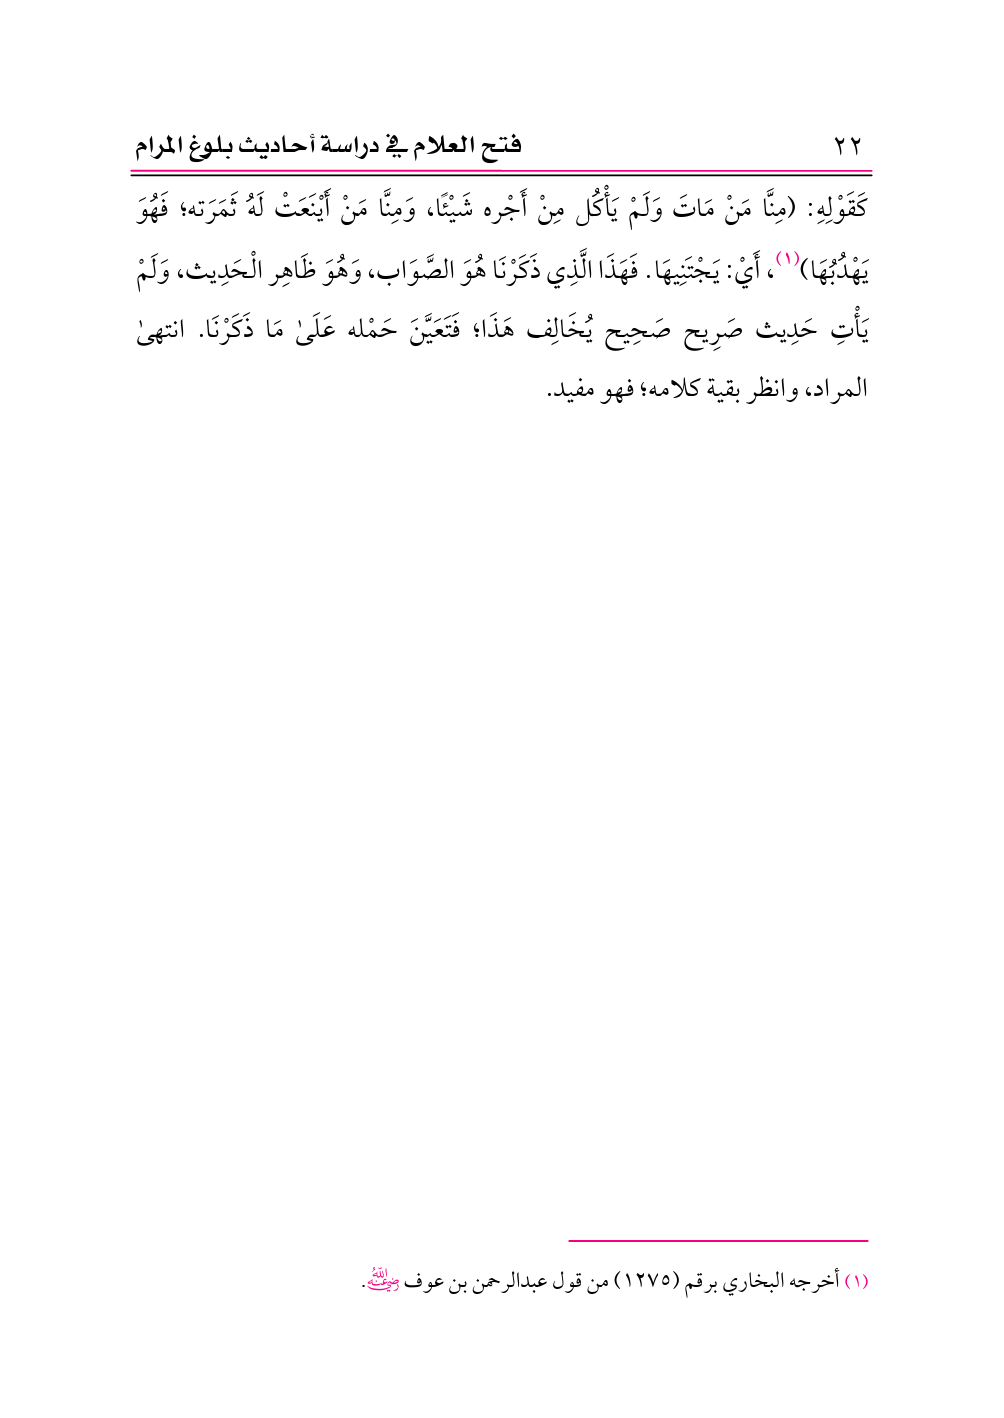 ٢٢ فتح العلام في دراسة أحاديث بلوغ المرام
كَقَوْلِهِ: (مِنَّا مَنْ مَاتَ وَلَمْ يَأْكُل مِنْ أَجْره شَيْئًا، وَمِنَّا مَنْ أَيْنَعَتْ لَهُ ثَمَرَته؛ فَهُوَ
يَهْدُبُهَا)(١)، أَيْ: يَجْتَنِيهَا. فَهَذَا الَّذِي ذَكَرْنَا هُوَ الصَّوَاب، وَهُوَ ظَاهِر الْحَدِيث، وَلَمْ
يَأْتِ حَدِيث صَرِيح صَحِيح يُخَالِف هَذَا؛ فَتَعَيَّنَ حَمْله عَلَىٰ مَا ذَكَرْنَا. انتهىٰ
المراد، وانظر بقية كلامه؛ فهو مفيد.
(١) أخرجه البخاري برقم (١٢٧٥) من قول عبدالرحمن بن عوف رضي الله عنه.